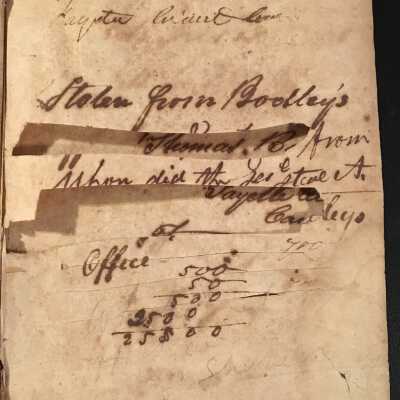 Fayette Circuit
Stolen from Bodley's
Thomas R. from
Whom did
steal A.
Fayette
Bodleys
of
Office 700
500
50
500
2500
25500